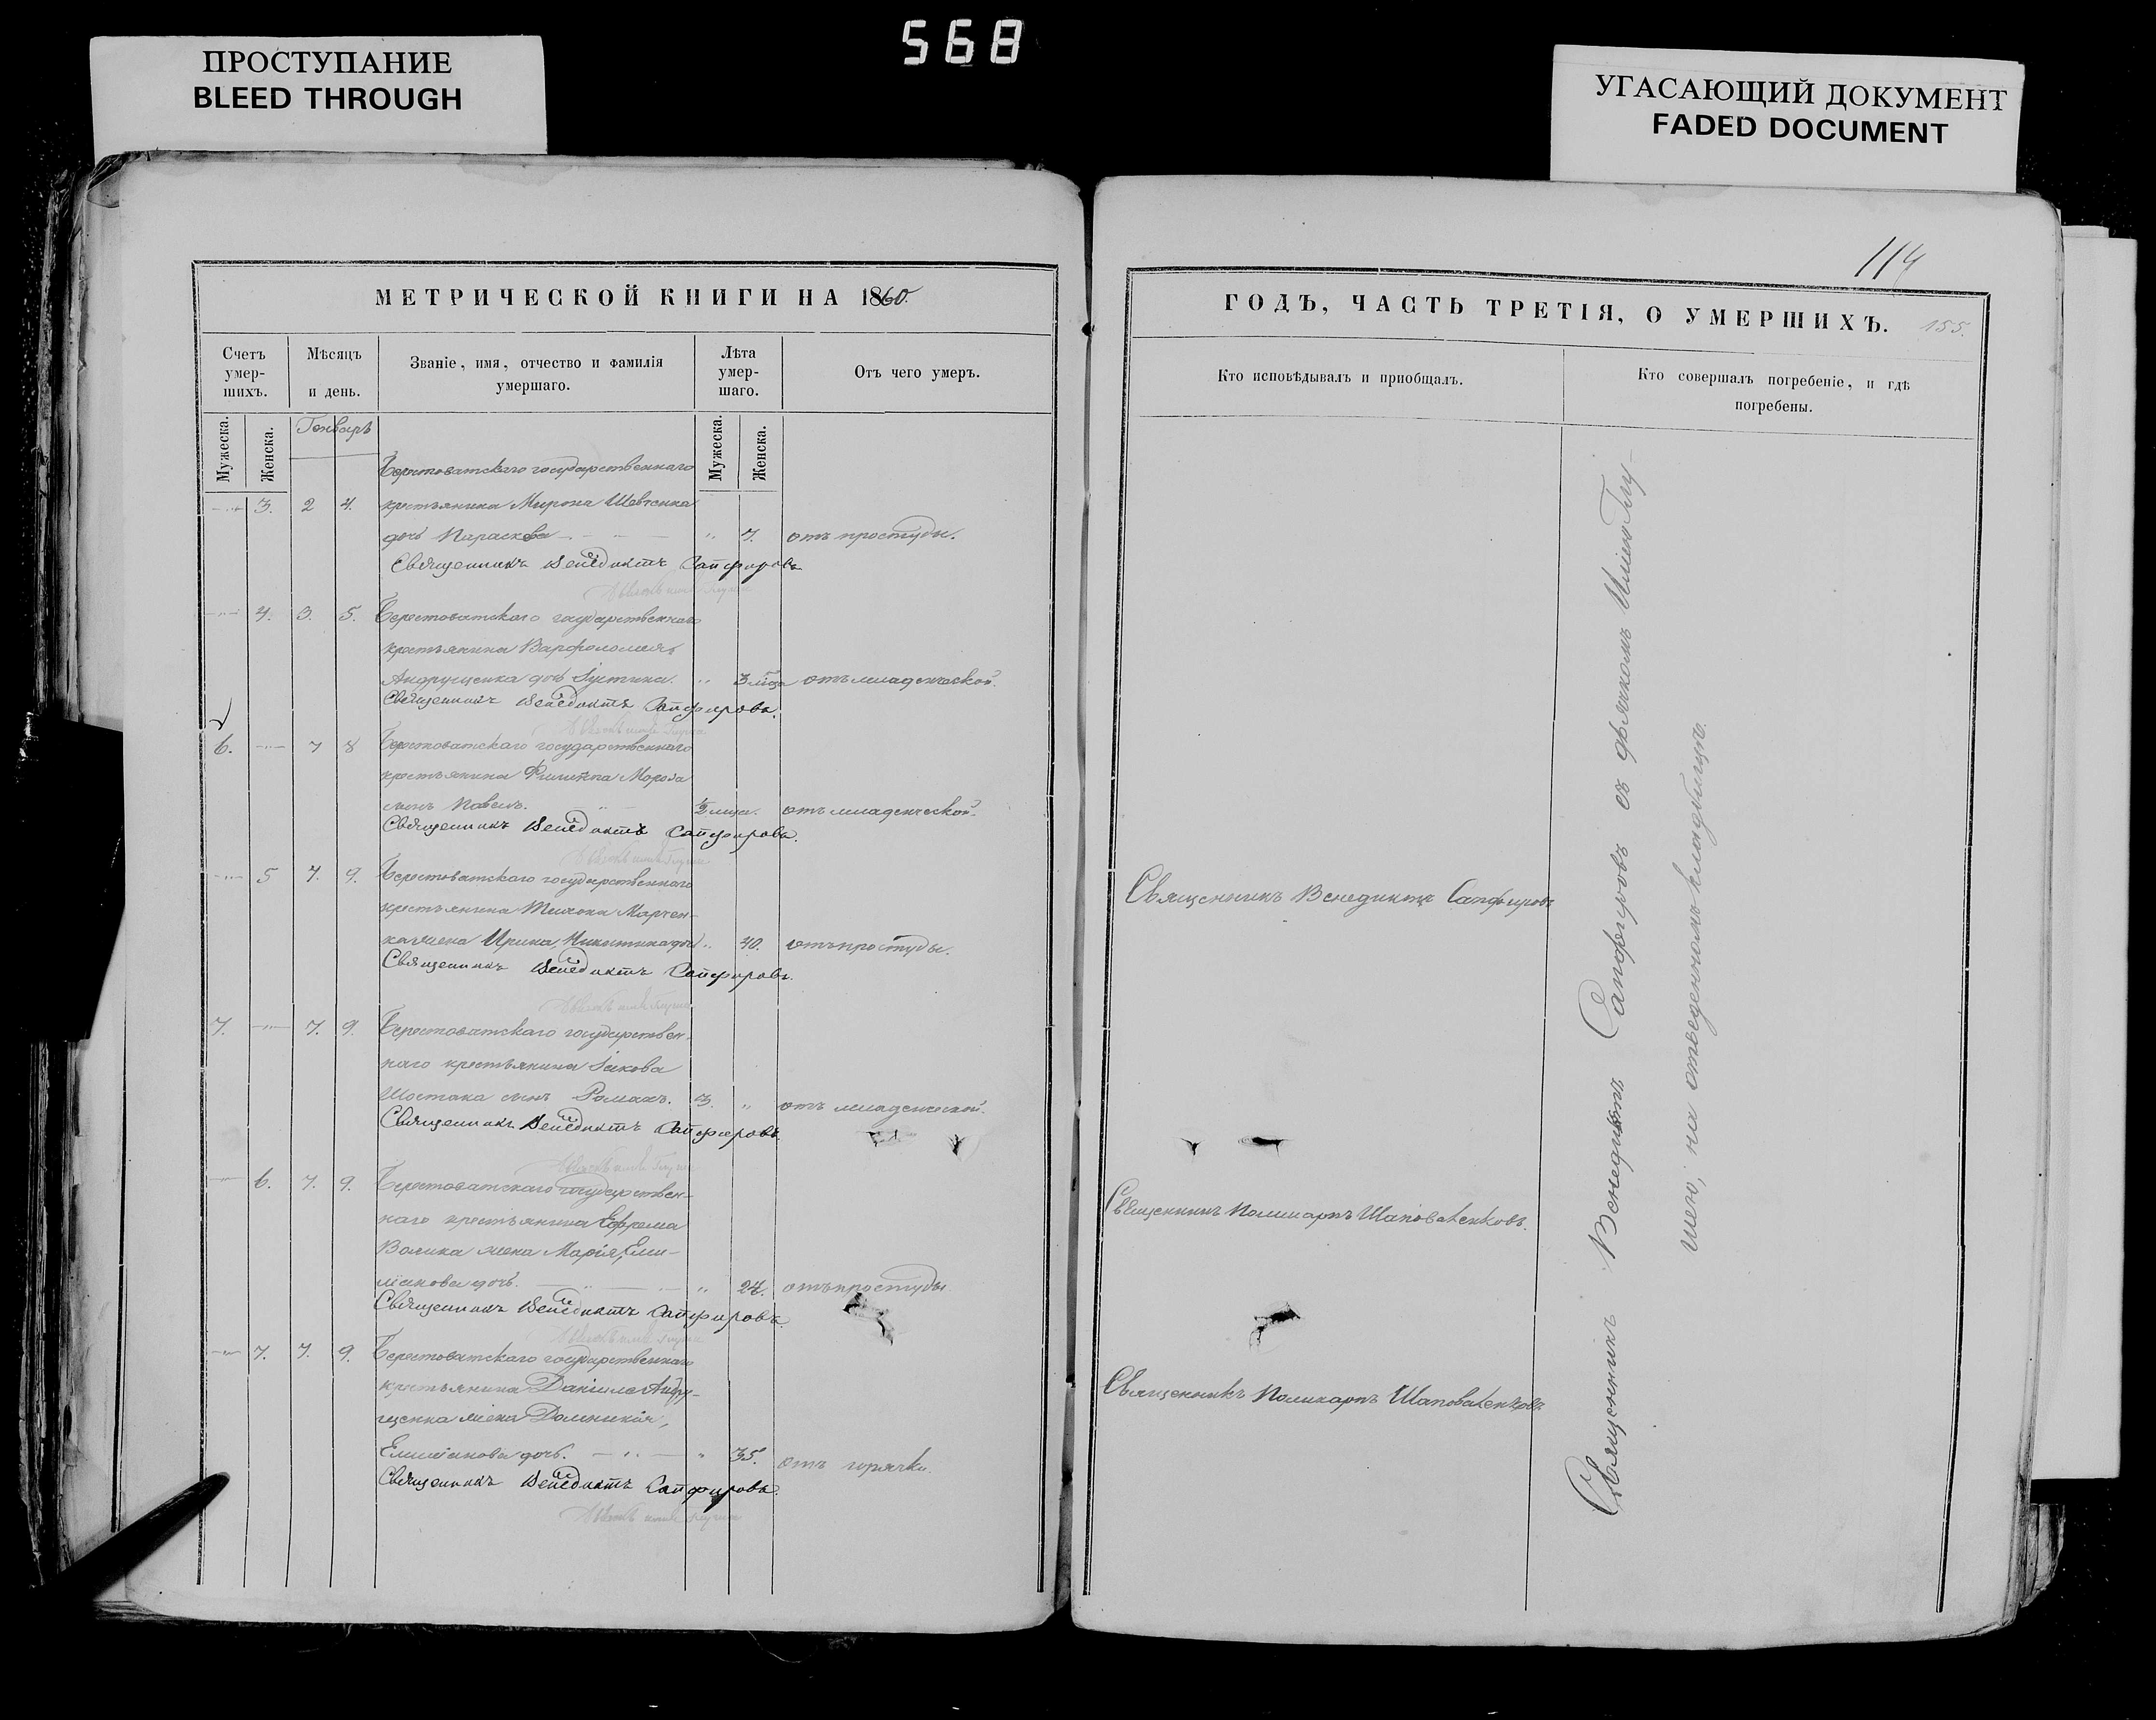 568
ПРОСТУПАНИЕ
BLEED THROUGH
УГАСАЮЩИЙ ДОКУМЕНТ
FADED DOCUMENT
МЕТРИЧЕСКОЙ КНИГИ НА 1860.
Счетъ умер-шихъ.
Мѣсяцъ и день.
Званіе, имя, отчество и фамилія умершаго.
Лѣта умер-шаго.
Отъ чего умеръ.
Мужеска.
Женска.
Генварь
Мужеска.
Женска.
Берестоватскаго государственнаго
3. 2 4. крестьянина Мирона Шевченка
дочь Параскева 7. отъ простуды.
Священникъ Венедиктъ Сапфировъ
4. 3. 5. Берестоватскаго государственнаго
крестьянина Варфоломея
Андрущенка дочь Іустина. 3 мца отъ младенческой.
Священникъ Венедиктъ Сапфировъ.
6. 7 8 Берестоватскаго государственнаго
крестьянина Филиппа Мороза
сынъ Павелъ. мца. отъ младенческой.
Священникъ Венедиктъ Сапфировъ.
5 7. 9. Берестоватскаго государственнаго
крестьянина Тихона Марчен-
ка жена Ирина, Никитина дочь 40. отъ простуды.
Священникъ Венедиктъ Сапфировъ.
7. 7. 9. Берестоватскаго государствен-
наго крестьянина Іакова
Шостака сынъ Романъ. 3. отъ младенческой.
Священникъ Венедиктъ Сапфировъ
6. 7. 9. Берестоватскаго государствен-
наго крестьянина Ефрема
Волика жена Марія, Еми-
ліанова дочь. 24. отъ простуды
Священникъ Венедиктъ Сапфировъ.
7. 7. 9. Берестоватскаго государственнаго
крестьянина Даніила Андру-
щенка жена Домникія,
Емиліанова дочь. 35. отъ горячки.
Священникъ Венедиктъ Сапфировъ.
114
ГОДЪ, ЧАСТЬ ТРЕТІЯ, О УМЕРШИХЪ.
155.
Кто исповѣдывалъ и приобщалъ.
Кто совершалъ погребеніе, и гдѣ погребены.
Священникъ Венедиктъ Сапфировъ
Священникъ Поликарпъ Шаповаленковъ.
Священникъ Поликарпъ Шаповаленковъ
Священникъ Венедиктъ Сапфировъ съ дьякомъ Иліею Глу-
шею, на отведенномъ кладбищѣ.